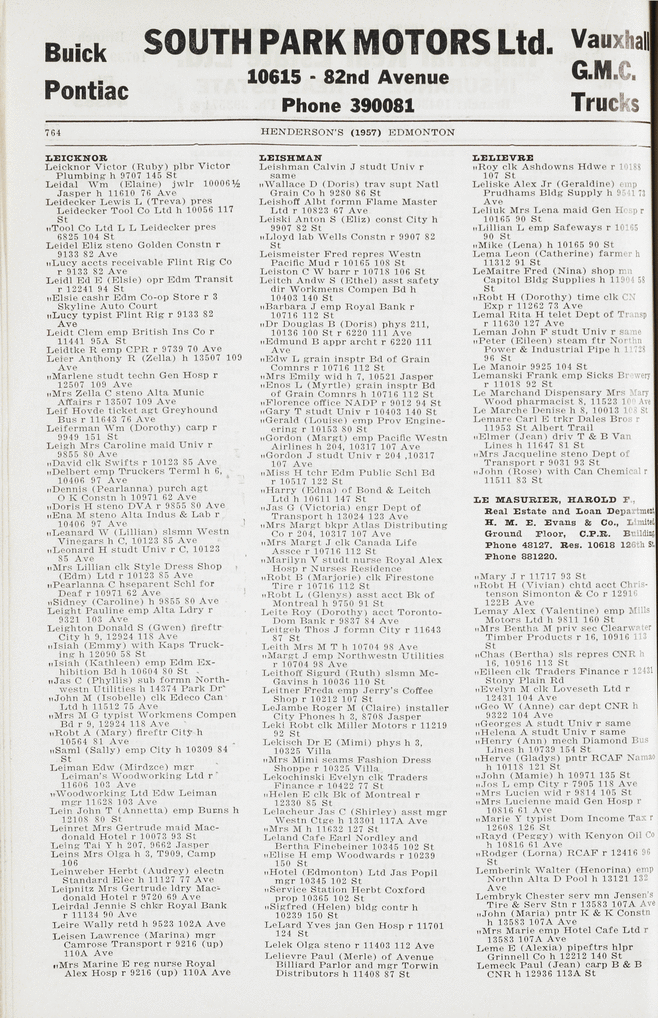 Buick
Pontiac
SOUTH PARK MOTORS Ltd.
10615 - 82nd Avenue
Phone 390081
Vauxhall
G.M.C.
Trucks
764
HENDERSON'S (1957) EDMONTON
LEICKNOR
Leicknor Victor (Ruby) plbr Victor
Plumbing h 9707 145 St
Leidal Wm (Elaine) jwlr 10006½
Jasper h 11610 76 Ave
Leidecker Lewis L (Treva) pres
Leidecker Tool Co Ltd h 10056 117
St
„Tool Co Ltd L L Leidecker pres
6825 104 St
Leidel Eliz steno Golden Constn r
9133 82 Ave
„Lucy accts receivable Flint Rig Co
r 9133 82 Ave
Leidl Ed E (Elsie) opr Edm Transit
r 12241 94 St
„Elsie cashr Edm Co-op Store r 3
Skyline Auto Court
„Lucy typist Flint Rig r 9133 82
Ave
Leidt Clem emp British Ins Co r
11441 95A St
Leidtke R emp CPR r 9739 70 Ave
Leier Anthony R (Zella) h 13507 109
Ave
„Marlene studt techn Gen Hosp r
12507 109 Ave
„Mrs Zella C steno Alta Munic
Affairs r 13507 109 Ave
Leif Hovde ticket agt Greyhound
Bus r 11643 76 Ave
Leiferman Wm (Dorothy) carp r
9949 151 St
Leigh Mrs Caroline maid Univ r
9855 80 Ave
„David clk Swifts r 10123 85 Ave
„Delbert emp Truckers Terml h 6,
10406 97 Ave
„Dennis (Pearlanna) purch agt
O K Constn h 10971 62 Ave
„Doris H steno DVA r 9855 80 Ave
„Ena M steno Alta Indus & Lab r
10406 97 Ave
„Leanard W (Lillian) slsmn Westn
Vinegars h C, 10123 85 Ave
„Leonard H studt Univ r C, 10123
85 Ave
„Mrs Lillian clk Style Dress Shop
(Edm) Ltd r 10123 85 Ave
„Pearlanna C hseparent Schl for
Deaf r 10971 62 Ave
„Sidney (Caroline) h 9855 80 Ave
Leight Pauline emp Alta Ldry r
9321 103 Ave
Leighton Donald S (Gwen) fireftr
City h 9, 12924 118 Ave
„Isiah (Emmy) with Kaps Truck-
ing h 12090 58 St
„Isiah (Kathleen) emp Edm Ex-
hibition Bd h 10604 80 St
„Jas C (Phyllis) sub formn North-
westn Utilities h 14374 Park Dr
„John M (Isobelle) clk Edeco Can
Ltd h 11512 75 Ave
„Mrs M G typist Workmens Compen
Bd r 9, 12924 118 Ave
„Robt A (Mary) fireftr City h
10564 81 Ave
„Saml (Sally) emp City h 10309 84
St
Leiman Edw (Mirdzce) mgr
Leiman's Woodworking Ltd r
11606 103 Ave
„Woodworking Ltd Edw Leiman
mgr 11628 103 Ave
Lein John T (Annetta) emp Burns h
12108 80 St
Leinret Mrs Gertrude maid Mac-
donald Hotel r 10073 93 St
Leing Tai Y h 207, 9662 Jasper
Leins Mrs Olga h 3, T909, Camp
106
Leinweber Herbt (Audrey) electn
Standard Elec h 11127 77 Ave
Leipnitz Mrs Gertrude ldry Mac-
donald Hotel r 9720 69 Ave
Leirdal Jennie S chkr Royal Bank
r 11134 90 Ave
Leire Wally retd h 9523 102A Ave
Leisen Lawrence (Marina) mgr
Camrose Transport r 9216 (up)
110A Ave
„Mrs Marine E reg nurse Royal
Alex Hosp r 9216 (up) 110A Ave
LEISHMAN
Leishman Calvin J studt Univ r
same
„Wallace D (Doris) trav supt Natl
Grain Co h 9280 86 St
Leishoff Albt formn Flame Master
Ltd r 10823 67 Ave
Leiski Anton S (Eliz) const City h
9907 82 St
„Lloyd lab Wells Constn r 9907 82
St
Leismeister Fred repres Westn
Pacific Mud r 10165 108 St
Leiston C W barr r 10718 106 St
Leitch Andw S (Ethel) asst safety
dir Workmens Compen Bd h
10403 140 St
„Barbara J emp Royal Bank r
10716 112 St
„Dr Douglas B (Doris) phys 211,
10136 100 St r 6220 111 Ave
„Edmund B appr archt r 6220 111
Ave
„Edw L grain insptr Bd of Grain
Comnrs r 10716 112 St
„Mrs Emily wid h 7, 10521 Jasper
„Enos L (Myrtle) grain insptr Bd
of Grain Comnrs h 10716 112 St
„Florence office NADP r 9012 94 St
„Gary T studt Univ r 10403 140 St
„Gerald (Louise) emp Prov Engine-
ering r 10153 80 St
„Gordon (Margt) emp Pacific Westn
Airlines h 204, 10317 107 Ave
„Gordon J studt Univ r 204 ,10317
107 Ave
„Miss H tchr Edm Public Schl Bd
r 10517 122 St
„Harry (Edna) of Bond & Leitch
Ltd h 10611 147 St
„Jas G (Victoria) engr Dept of
Transport h 13024 123 Ave
„Mrs Margt bkpr Atlas Distributing
Co r 204, 10317 107 Ave
„Mrs Margt J clk Canada Life
Assce r 10716 112 St
„Marilyn V studt nurse Royal Alex
Hosp r Nurses Residence
„Robt B (Marjorie) clk Firestone
Tire r 10716 112 St
„Robt L (Glenys) asst acct Bk of
Montreal h 9750 91 St
Leite Roy (Dorothy) acct Toronto-
Dom Bank r 9837 84 Ave
Leitgeb Thos J formn City r 11643
87 St
Leith Mrs M T h 10704 98 Ave
„Margt J emp Northwestn Utilities
r 10704 98 Ave
Leithoff Sigurd (Ruth) slsmn Mc-
Gavins h 10036 110 St
Leitner Freda emp Jerry's Coffee
Shop r 10212 107 St
LeJambe Roger M (Claire) installer
City Phones h 3, 8708 Jasper
Leki Robt clk Miller Motors r 11219
92 St
Lekisch Dr E (Mimi) phys h 3,
10325 Villa
„Mrs Mimi seams Fashion Dress
Shoppe r 10325 Villa
Lekochinski Evelyn clk Traders
Finance r 10422 77 St
„Helen E clk Bk of Montreal r
12330 85 St
Lelacheur Jas C (Shirley) asst mgr
Westn Ctge h 13301 117A Ave
„Mrs M h 11632 127 St
Leland Cafe Earl Nordley and
Bertha Finebeiner 10345 102 St
„Elise H emp Woodwards r 10239
150 St
„Hotel (Edmonton) Ltd Jas Popil
mgr 10345 102 St
„Service Station Herbt Coxford
prop 10365 102 St
„Sigfred (Helen) bldg contr h
10239 150 St
LeLard Yves jan Gen Hosp r 11701
124 St
Lelek Olga steno r 11403 112 Ave
Lelievre Paul (Merle) of Avenue
Billiard Parlor and mgr Torwin
Distributors h 11408 87 St
LELIEVRE
„Roy clk Ashdowns Hdwe r 10188
107 St
Leliske Alex Jr (Geraldine) emp
Prudhams Bldg Supply h 9541 73
Ave
Leliuk Mrs Lena maid Gen Hosp r
10165 90 St
„Lillian L emp Safeways r 10165
90 St
„Mike (Lena) h 10165 90 St
Lema Leon (Catherine) farmer h
11312 91 St
LeMaitre Fred (Nina) shop mn
Capitol Bldg Supplies h 11904 58
St
„Robt H (Dorothy) time clk CN
Exp r 11262 73 Ave
Lemal Rita H telet Dept of Transp
r 11630 127 Ave
Leman John F studt Univ r same
„Peter (Eileen) steam ftr Northn
Power & Industrial Pipe h 11728
96 St
Le Manoir 9925 104 St
Lemanski Frank emp Sicks Brewery
r 11018 92 St
Le Marchand Dispensary Mrs Mary
Wood pharmacist 8, 11523 100 Ave
Le Marche Denise h 8, 10013 108 St
Lemare Carl E trkr Dales Bros r
11953 St Albert Trail
„Elmer (Jean) driv T & B Van
Lines h 11647 81 St
„Mrs Jacqueline steno Dept of
Transport r 9031 93 St
„John (Rose) with Can Chemical r
11511 83 St
LE MASURIER, HAROLD F.,
Real Estate and Loan Department
H. M. E. Evans & Co., Limited
Ground Floor, C.P.R. Building
Phone 48127. Res. 10618 126th St.
Phone 881220.
„Mary J r 11717 93 St
„Robt H (Vivian) chtd acct Chris-
tenson Simonton & Co r 12916
122B Ave
Lemay Alex (Valentine) emp Mills
Motors Ltd h 9811 160 St
„Mrs Bertha M priv sec Clearwater
Timber Products r 16, 10916 113
St
„Chas (Bertha) sls repres CNR h
16, 10916 113 St
„Eileen clk Traders Finance r 12431
Stony Plain Rd
„Evelyn M clk Loveseth Ltd r
12431 104 Ave
„Geo W (Anne) car dept CNR h
9322 104 Ave
„Georges A studt Univ r same
„Helena A studt Univ r same
„Henry (Ann) mech Diamond Bus
Lines h 10739 154 St
„Herve (Gladys) pntr RCAF Namao
h 10118 121 St
„John (Mamie) h 10971 135 St
„Jos L emp City r 7905 118 Ave
„Mrs Lucien wid r 9814 105 St
„Mrs Lucienne maid Gen Hosp r
10816 61 Ave
„Marie Y typist Dom Income Tax r
12608 126 St
„Rayd (Peggy) with Kenyon Oil Co
h 10816 61 Ave
„Rodger (Lorna) RCAF r 12416 96
St
Lemberink Walter (Henorina) emp
Northn Alta D Pool h 13121 132
Ave
Lembryk Chester serv mn Jensen's
Tire & Serv Stn r 13583 107A Ave
„John (Maria) pntr K & K Constn
h 13583 107A Ave
„Mrs Marie emp Hotel Cafe Ltd r
13583 107A Ave
Leme E (Alexia) pipeftrs hlpr
Grinnell Co h 12212 140 St
Lemeck Paul (Jean) carp B & B
CNR h 12936 113A St